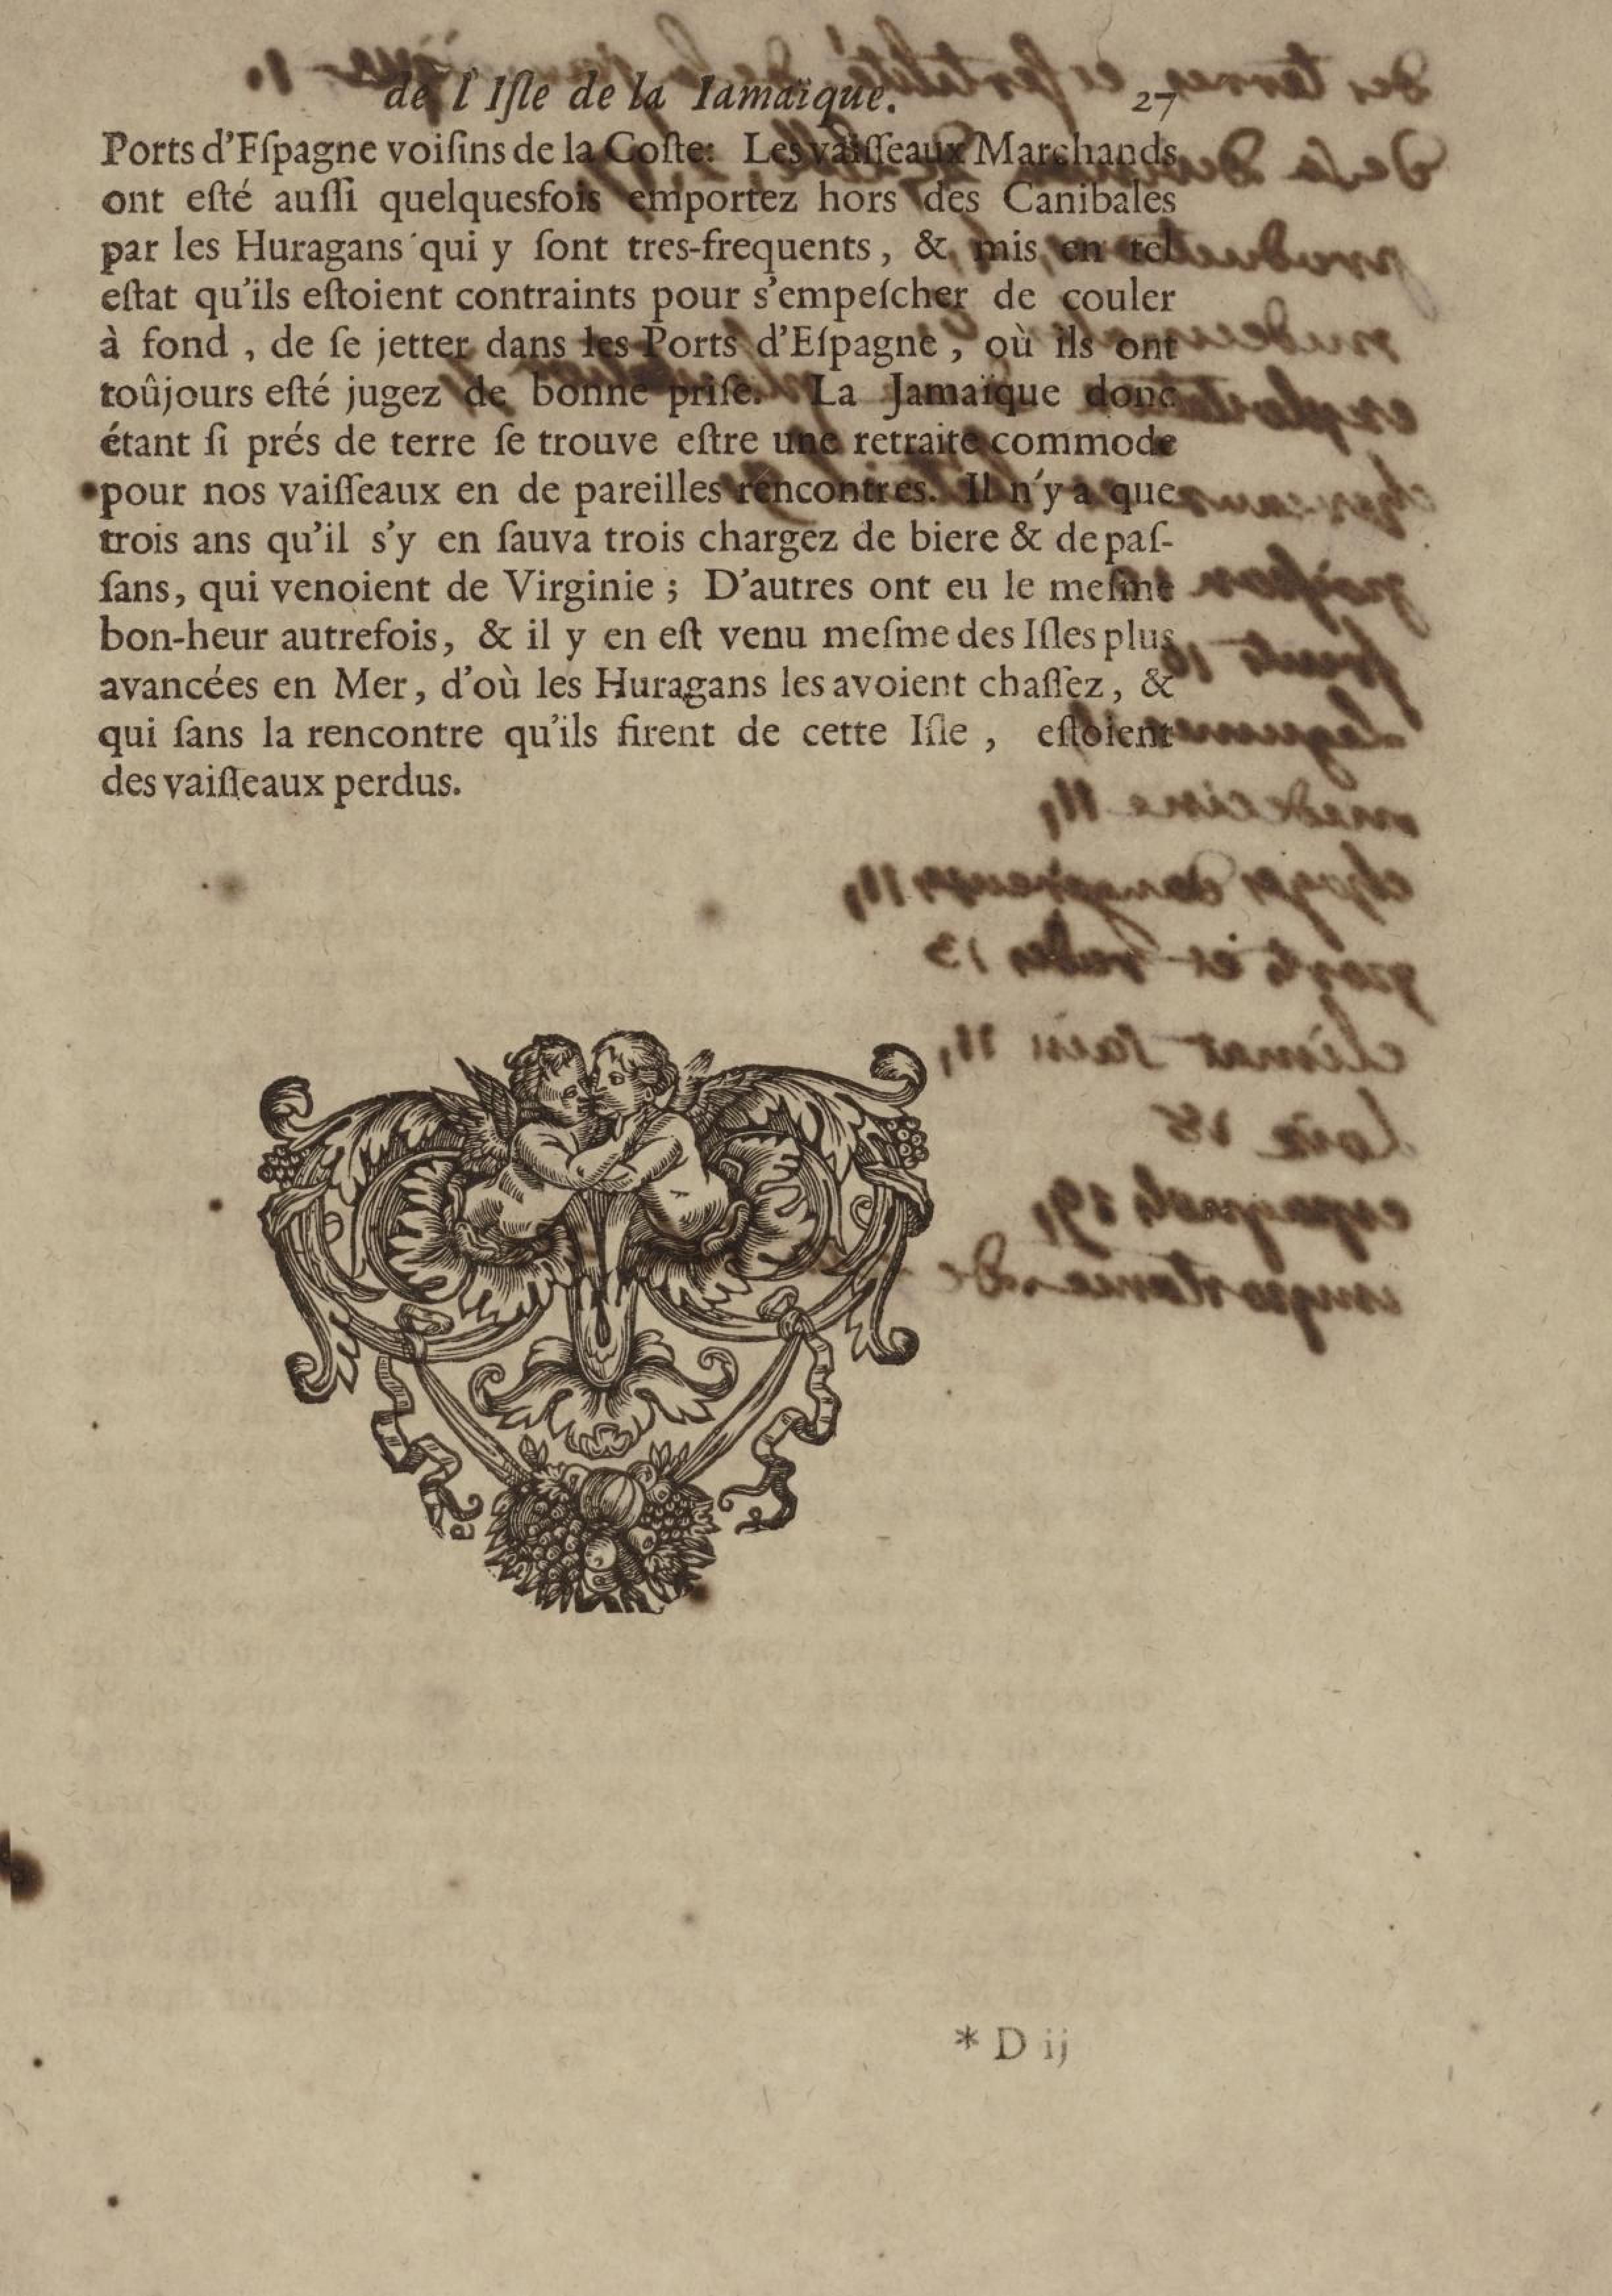 de l'Iſle de la Iamaïque. 27
Ports d'Fſpagne voiſins de la Coſte: Les vaiſſeaux Marchands
ont eſté auſſi quelquesfois emportez hors des Canibales
par les Huragans qui y ſont tres-frequents, & mis en tel
eſtat qu'ils eſtoient contraints pour s'empeſcher de couler
à fond, de ſe jetter dans les Ports d'Eſpagne, où ils ont
toûjours eſté jugez de bonne priſe. La Jamaïque donc
étant ſi prés de terre ſe trouve eſtre une retraite commode
pour nos vaiſſeaux en de pareilles rencontres. Il n'y a que
trois ans qu'il s'y en ſauva trois chargez de biere & de paſ-
ſans, qui venoient de Virginie; D'autres ont eu le meſme
bon-heur autrefois, & il y en eſt venu meſme des Iſles plus
avancées en Mer, d'où les Huragans les avoient chaſſez, &
qui ſans la rencontre qu'ils firent de cette Iſle, eſtoient
des vaiſſeaux perdus.
medecine 11,
ports et rades 13
climat sain 11,
espagnols 19,
importance de
* D ij